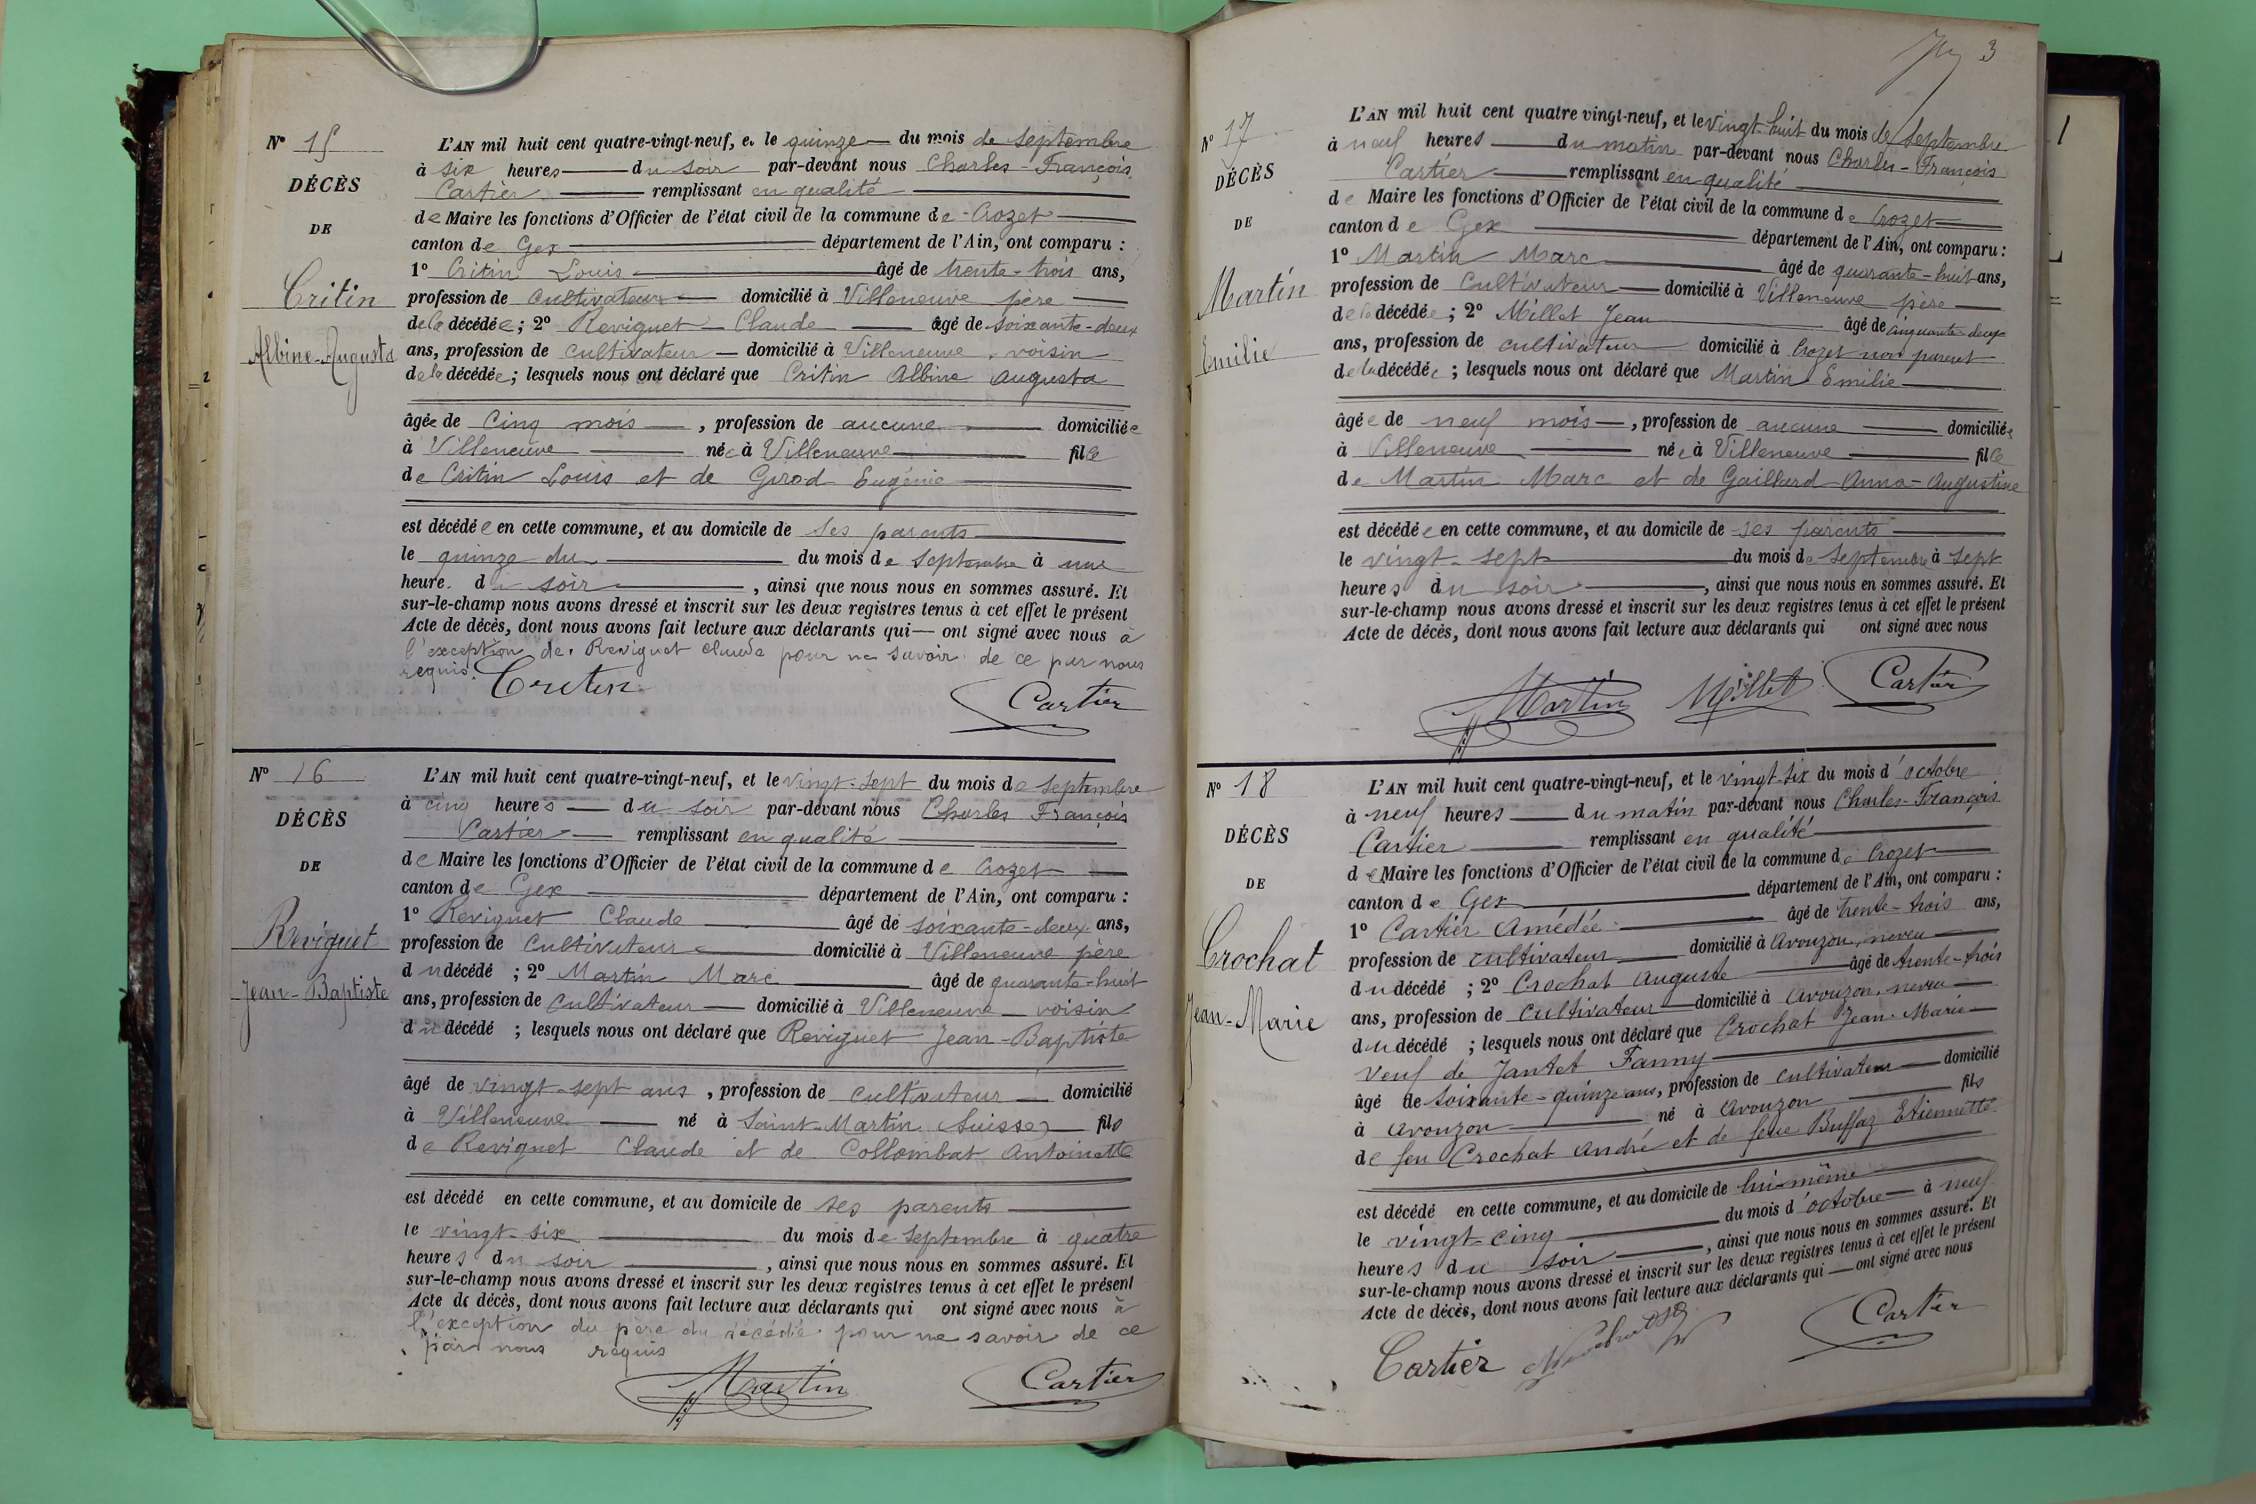 N° 15
DÉCÈS
DE
Critin
Albine-Augusta
L'AN mil huit cent quatre-vingt-neuf, et le quinze du mois de septembre
à six heures du soir par-devant nous Charles-François
Cartier remplissant en qualité
de Maire les fonctions d'Officier de l'état civil de la commune de Crozet
canton de Gex département de l'Ain, ont comparu :
1° Critin Louis âgé de trente-trois ans,
profession de cultivateur domicilié à Villeneuve père
de la décédée ; 2° Reviguet Claude âgé de soixante-deux
ans, profession de cultivateur domicilié à Villeneuve, voisin
de la décédée ; lesquels nous ont déclaré que Critin Albine Augusta
âgée de cinq mois, profession de aucune domiciliée
à Villeneuve née à Villeneuve fille
de Critin Louis et de Girod Eugénie
est décédée en cette commune, et au domicile de ses parents
le quinze du du mois de septembre à une
heure du soir, ainsi que nous nous en sommes assuré. Et
sur-le-champ nous avons dressé et inscrit sur les deux registres tenus à cet effet le présent
Acte de décès, dont nous avons fait lecture aux déclarants qui ont signé avec nous à
l'exception de Reviguet Claude pour ne savoir de ce par nous
requis.
Critin Cartier
N° 16
DÉCÈS
DE
Reviguet
Jean-Baptiste
L'AN mil huit cent quatre-vingt-neuf, et le vingt-sept du mois de septembre
à cinq heures du soir par-devant nous Charles François
Cartier remplissant en qualité
de Maire les fonctions d'Officier de l'état civil de la commune de Crozet
canton de Gex département de l'Ain, ont comparu :
1° Reviguet Claude âgé de soixante-deux ans,
profession de cultivateur domicilié à Villeneuve père
du décédé ; 2° Martin Marc âgé de quarante-huit
ans, profession de cultivateur domicilié à Villeneuve voisin
du décédé ; lesquels nous ont déclaré que Reviguet Jean-Baptiste
âgé de vingt-sept ans, profession de cultivateur domicilié
à Villeneuve né à Saint-Martin (Suisse) fils
de Reviguet Claude et de Collombat Antoinette
est décédé en cette commune, et au domicile de ses parents
le vingt-six du mois de septembre à quatre
heures du soir, ainsi que nous nous en sommes assuré. Et
sur-le-champ nous avons dressé et inscrit sur les deux registres tenus à cet effet le présent
Acte de décès, dont nous avons fait lecture aux déclarants qui ont signé avec nous à
l'exception du père du décédé pour ne savoir de ce
par nous requis
Martin Cartier
3
N° 17
DÉCÈS
DE
Martin
Emilie
L'AN mil huit cent quatre vingt-neuf, et le vingt-huit du mois de septembre
à neuf heures du matin par-devant nous Charles-François
Cartier remplissant en qualité
de Maire les fonctions d'Officier de l'état civil de la commune de Crozet
canton de Gex département de l'Ain, ont comparu :
1° Martin Marc âgé de quarante-huit ans,
profession de cultivateur domicilié à Villeneuve père
de la décédée ; 2° Millet Jean âgé de cinquante-deux
ans, profession de cultivateur domicilié à Crozet non parent
de la décédée ; lesquels nous ont déclaré que Martin Emilie
âgée de neuf mois, profession de aucune domiciliée
à Villeneuve née à Villeneuve fille
de Martin Marc et de Gaillard Anna-Augustine
est décédée en cette commune, et au domicile de ses parents
le vingt-sept du mois de septembre à sept
heures du soir, ainsi que nous nous en sommes assuré. Et
sur-le-champ nous avons dressé et inscrit sur les deux registres tenus à cet effet le présent
Acte de décès, dont nous avons fait lecture aux déclarants qui ont signé avec nous
Martin Millet Cartier
N° 18
DÉCÈS
DE
Crochat
Jean-Marie
L'AN mil huit cent quatre-vingt-neuf, et le vingt-six du mois d'octobre
à neuf heures du matin par-devant nous Charles-François
Cartier remplissant en qualité
de Maire les fonctions d'Officier de l'état civil de la commune de Crozet
canton de Gex département de l'Ain, ont comparu :
1° Cartier Amédée âgé de trente-trois ans,
profession de cultivateur domicilié à Avouzon, neveu
du décédé ; 2° Crochat Auguste âgé de trente-trois
ans, profession de cultivateur domicilié à Avouzon, neveu
du décédé ; lesquels nous ont déclaré que Crochat Jean-Marie
veuf de Jantet Fanny
âgé de soixante-quinze ans, profession de cultivateur domicilié
à Avouzon né à Avouzon fils
de feu Crochat André et de feue Buffaz Etiennette
est décédé en cette commune, et au domicile de lui-même
le vingt-cinq du mois d'octobre à neuf
heures du soir, ainsi que nous nous en sommes assuré. Et
sur-le-champ nous avons dressé et inscrit sur les deux registres tenus à cet effet le présent
Acte de décès, dont nous avons fait lecture aux déclarants qui ont signé avec nous
Cartier Cartier